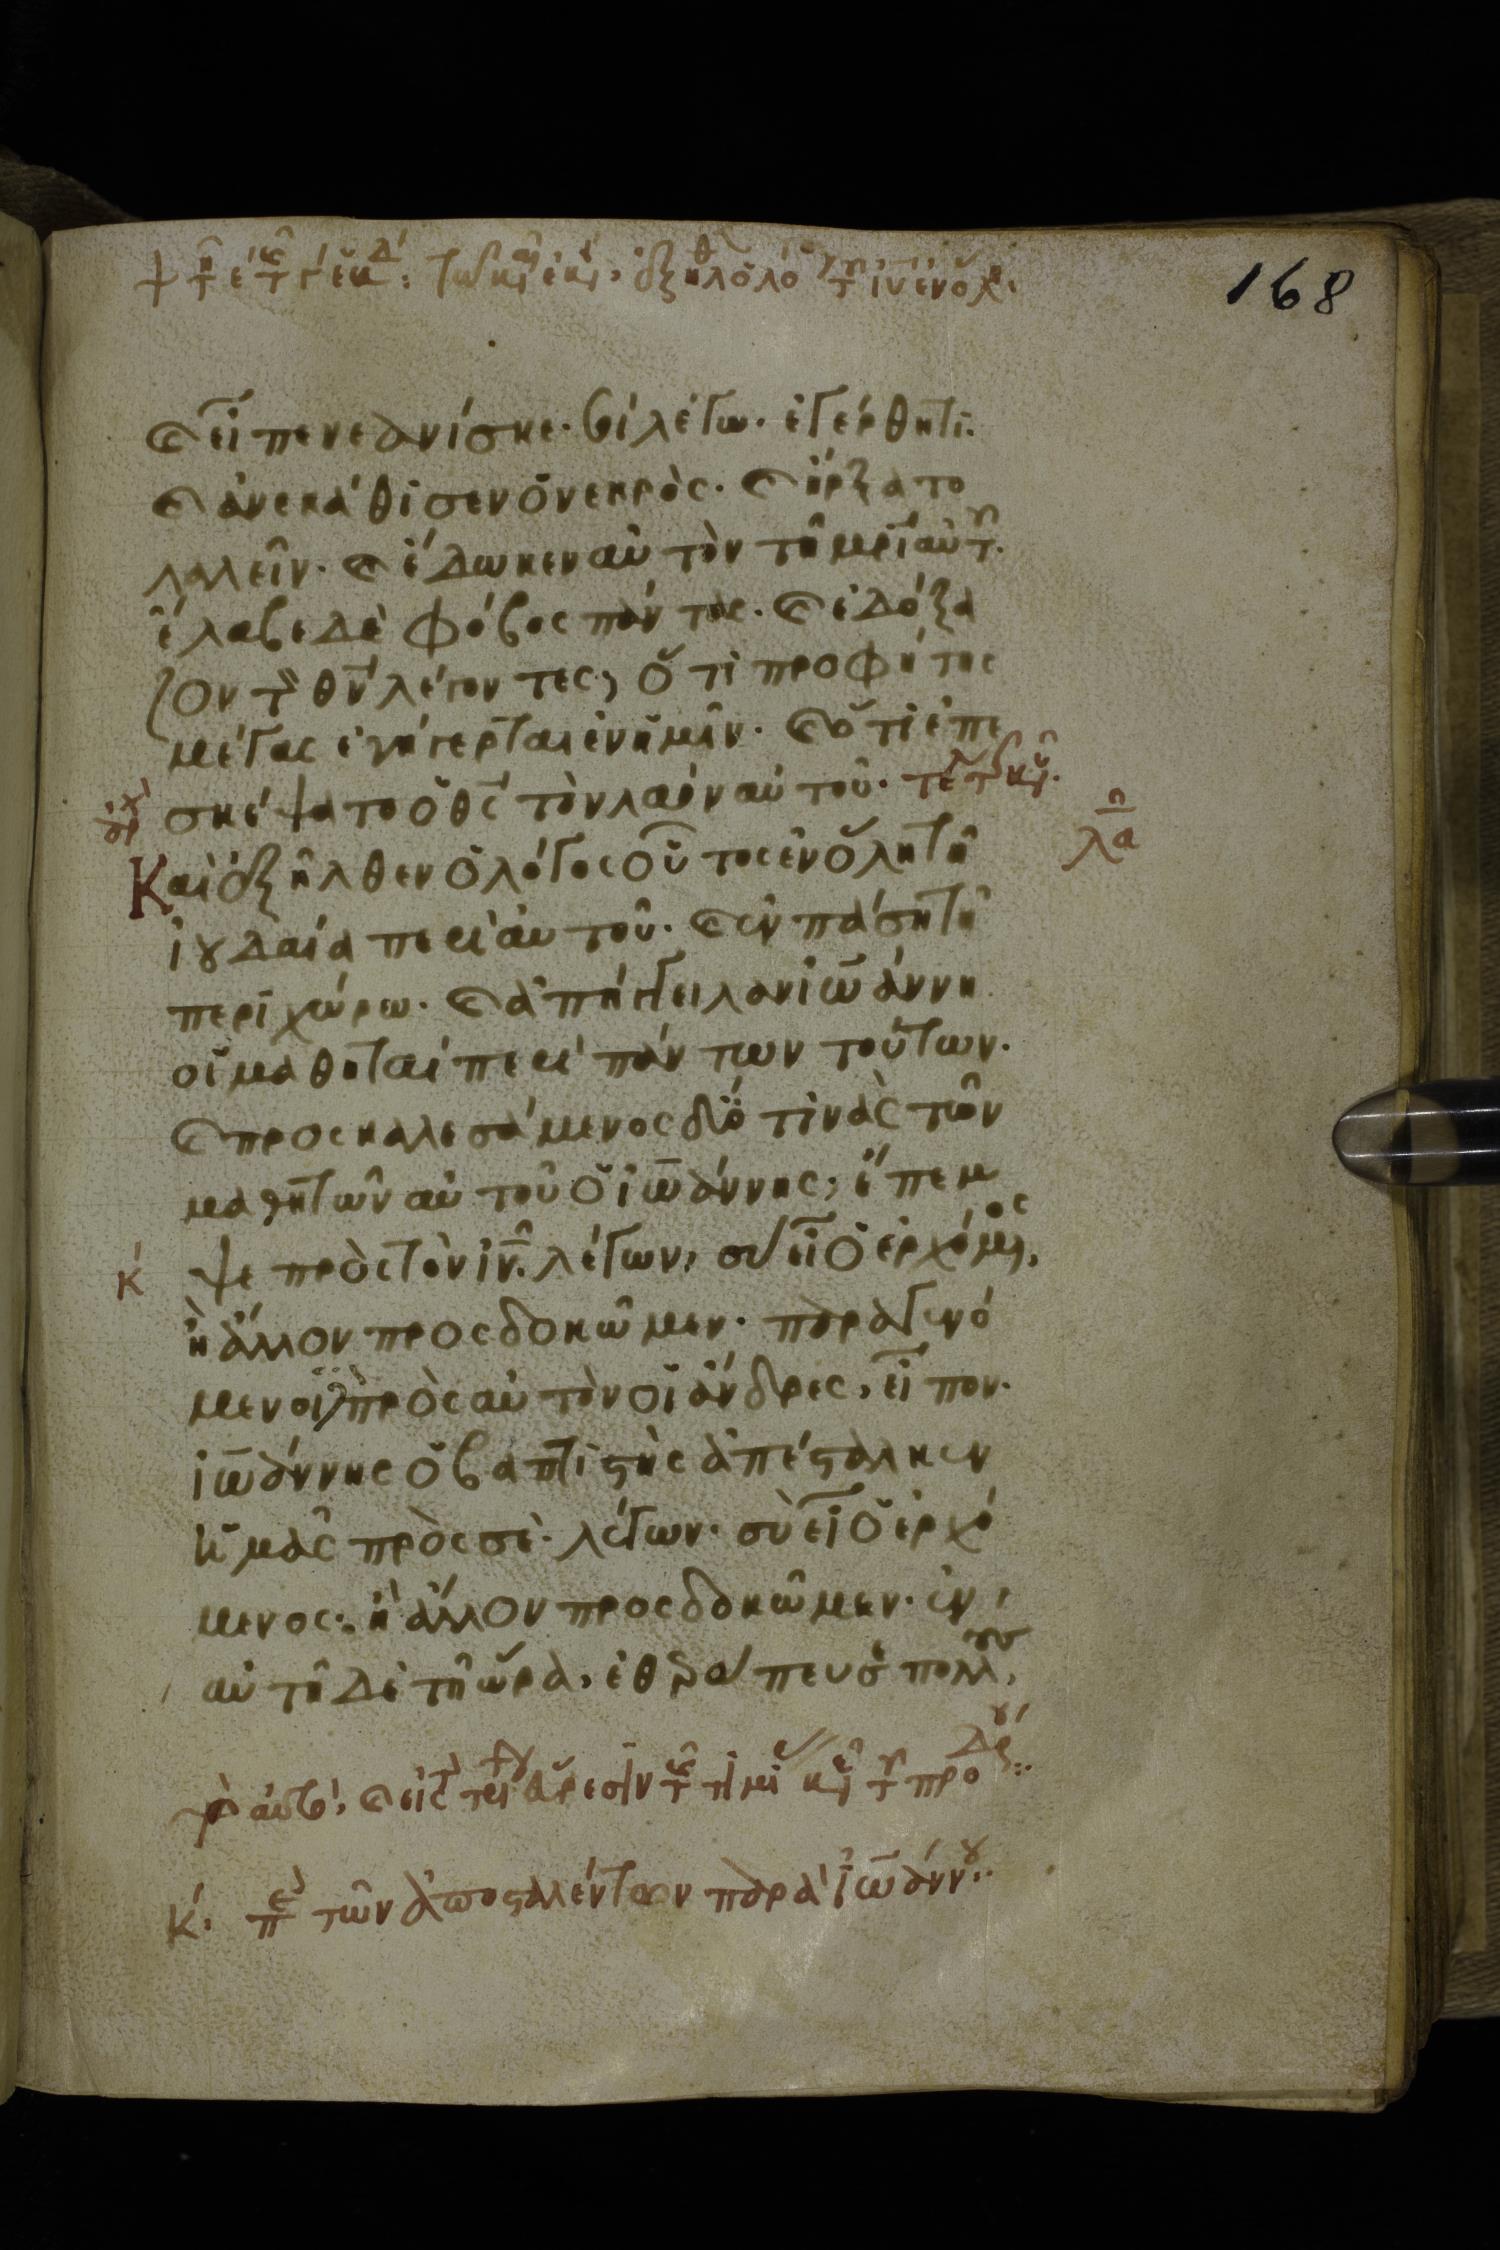 168
ϗ εἶπε νεανίσκε· σοὶ λέγω· ἐγέρθητι·
ϗ ἀνεκάθισεν ὁ νεκρὸς· ϗ ἤρξατο
λαλεῖν· ϗ ἔδωκεν αὐτὸν τῆ μρῒ αὐτ(οῦ)·
ἔλαβε δὲ φόβος πάντας· ϗ ἐδόξα
ζον τὸν θν λέγοντες, ὅτι προφήτης
μέγας ἐγήγερται ἐν ἡμῖν· ϗ ὅτι ἐπε
σκέψατο ὁ θς τὸν λαὸν αὐτοῦ·
λα
Καὶ ἐξῆλθεν ὁ λόγος οὗτος ἐν ὅλη τῆ
ἰουδαία περὶ αὐτοῦ· ϗ ἐν πάση τῆ
περιχώρω· ϗ ἀπήγγειλαν ἰωάννη
οἱ μαθηταὶ περὶ πάντων τούτων·
ϗ προσκαλεσάμενος δύο τινὰς τῶν
μαθητῶν αὐτοῦ ὁ ἰωάννης, ἔπεμ
κ
ψε πρὸς τὸν ἰν· λέγων, σὺ εἶ ὁ ἐρχόμενος,
ἢ ἄλλον προσδοκῶμεν· παραγενό
μενοι δὲ πρὸς αὐτὸν οἱ ἄνδρες, εἶπον·
ἰωάννης ὁ βαπτιστὴς ἀπέσταλκεν
ἡμᾶς πρὸς σὲ· λέγων· σὺ εἶ ὁ ἐρχό
μενος· ἢ ἄλλον προσδοκῶμεν· ἐν
αὐτῆ δὲ τῆ ὥρα, ἐθεράπευσε πολλους
ϗ εἰς τ εὕρεσιν τ τιμί κε τ προδρ
κ· πε τῶν ἀποσταλέντων παρὰ ἰωάννου·